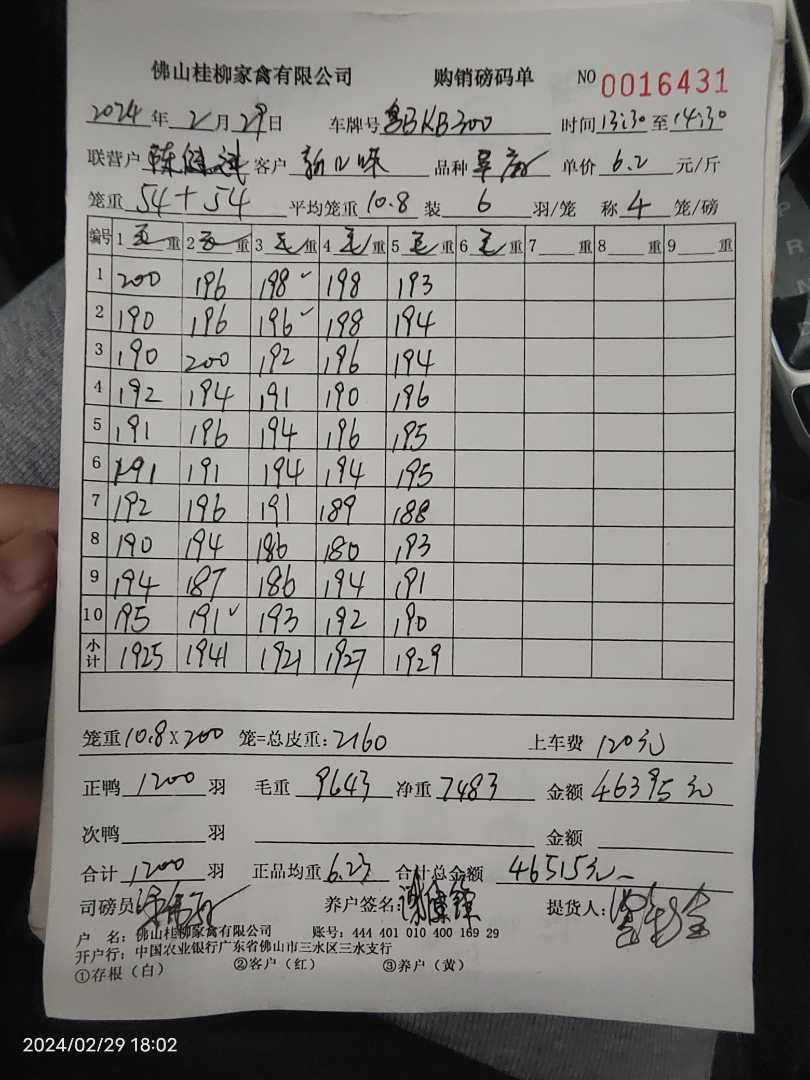 佛山桂柳家禽有限公司 购销磅码单 NO 0016431
2024年 2月29日 车牌号 粤BKB300 时间13:30至14:30
联营户 客户 新口味 品种 单价 6.2 元/斤
笼重 54+54 平均笼重 10.8 装 6 羽/笼 称 4 笼/磅
编号 1 毛重 2 毛重 3 毛重 4 毛重 5 毛重 6 毛重 7 重 8 重 9 重
1 200 196 198✓ 198 193
2 190 196 196✓ 198 194
3 190 200 192 196 194
4 192 194 191 190 196
5 191 196 194 196 195
6 191 191 194 194 195
7 192 196 191 189 188
8 190 194 186 180 193
9 194 187 186 194 191
10 195 191✓ 193 192 190
小计 1925 1941 1921 1927 1929
笼重10.8X200 笼=总皮重:2160 上车费 120元
正鸭 1200 羽 毛重 9643 净重 7483 金额 46395元
次鸭 羽 金额
合计 1200 羽 正品均重 6.23 合计总金额 46515元
司磅员 养户签名: 提货人:
户 名: 佛山桂柳家禽有限公司 账号: 444 401 010 400 169 29
开户行: 中国农业银行广东省佛山市三水区三水支行
①存根(白) ②客户(红) ③养户(黄)
2024/02/29 18:02